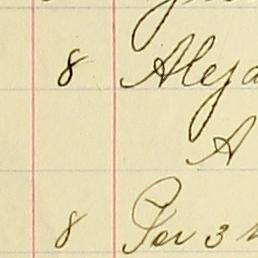 8 Aleja
A
8 Per 3